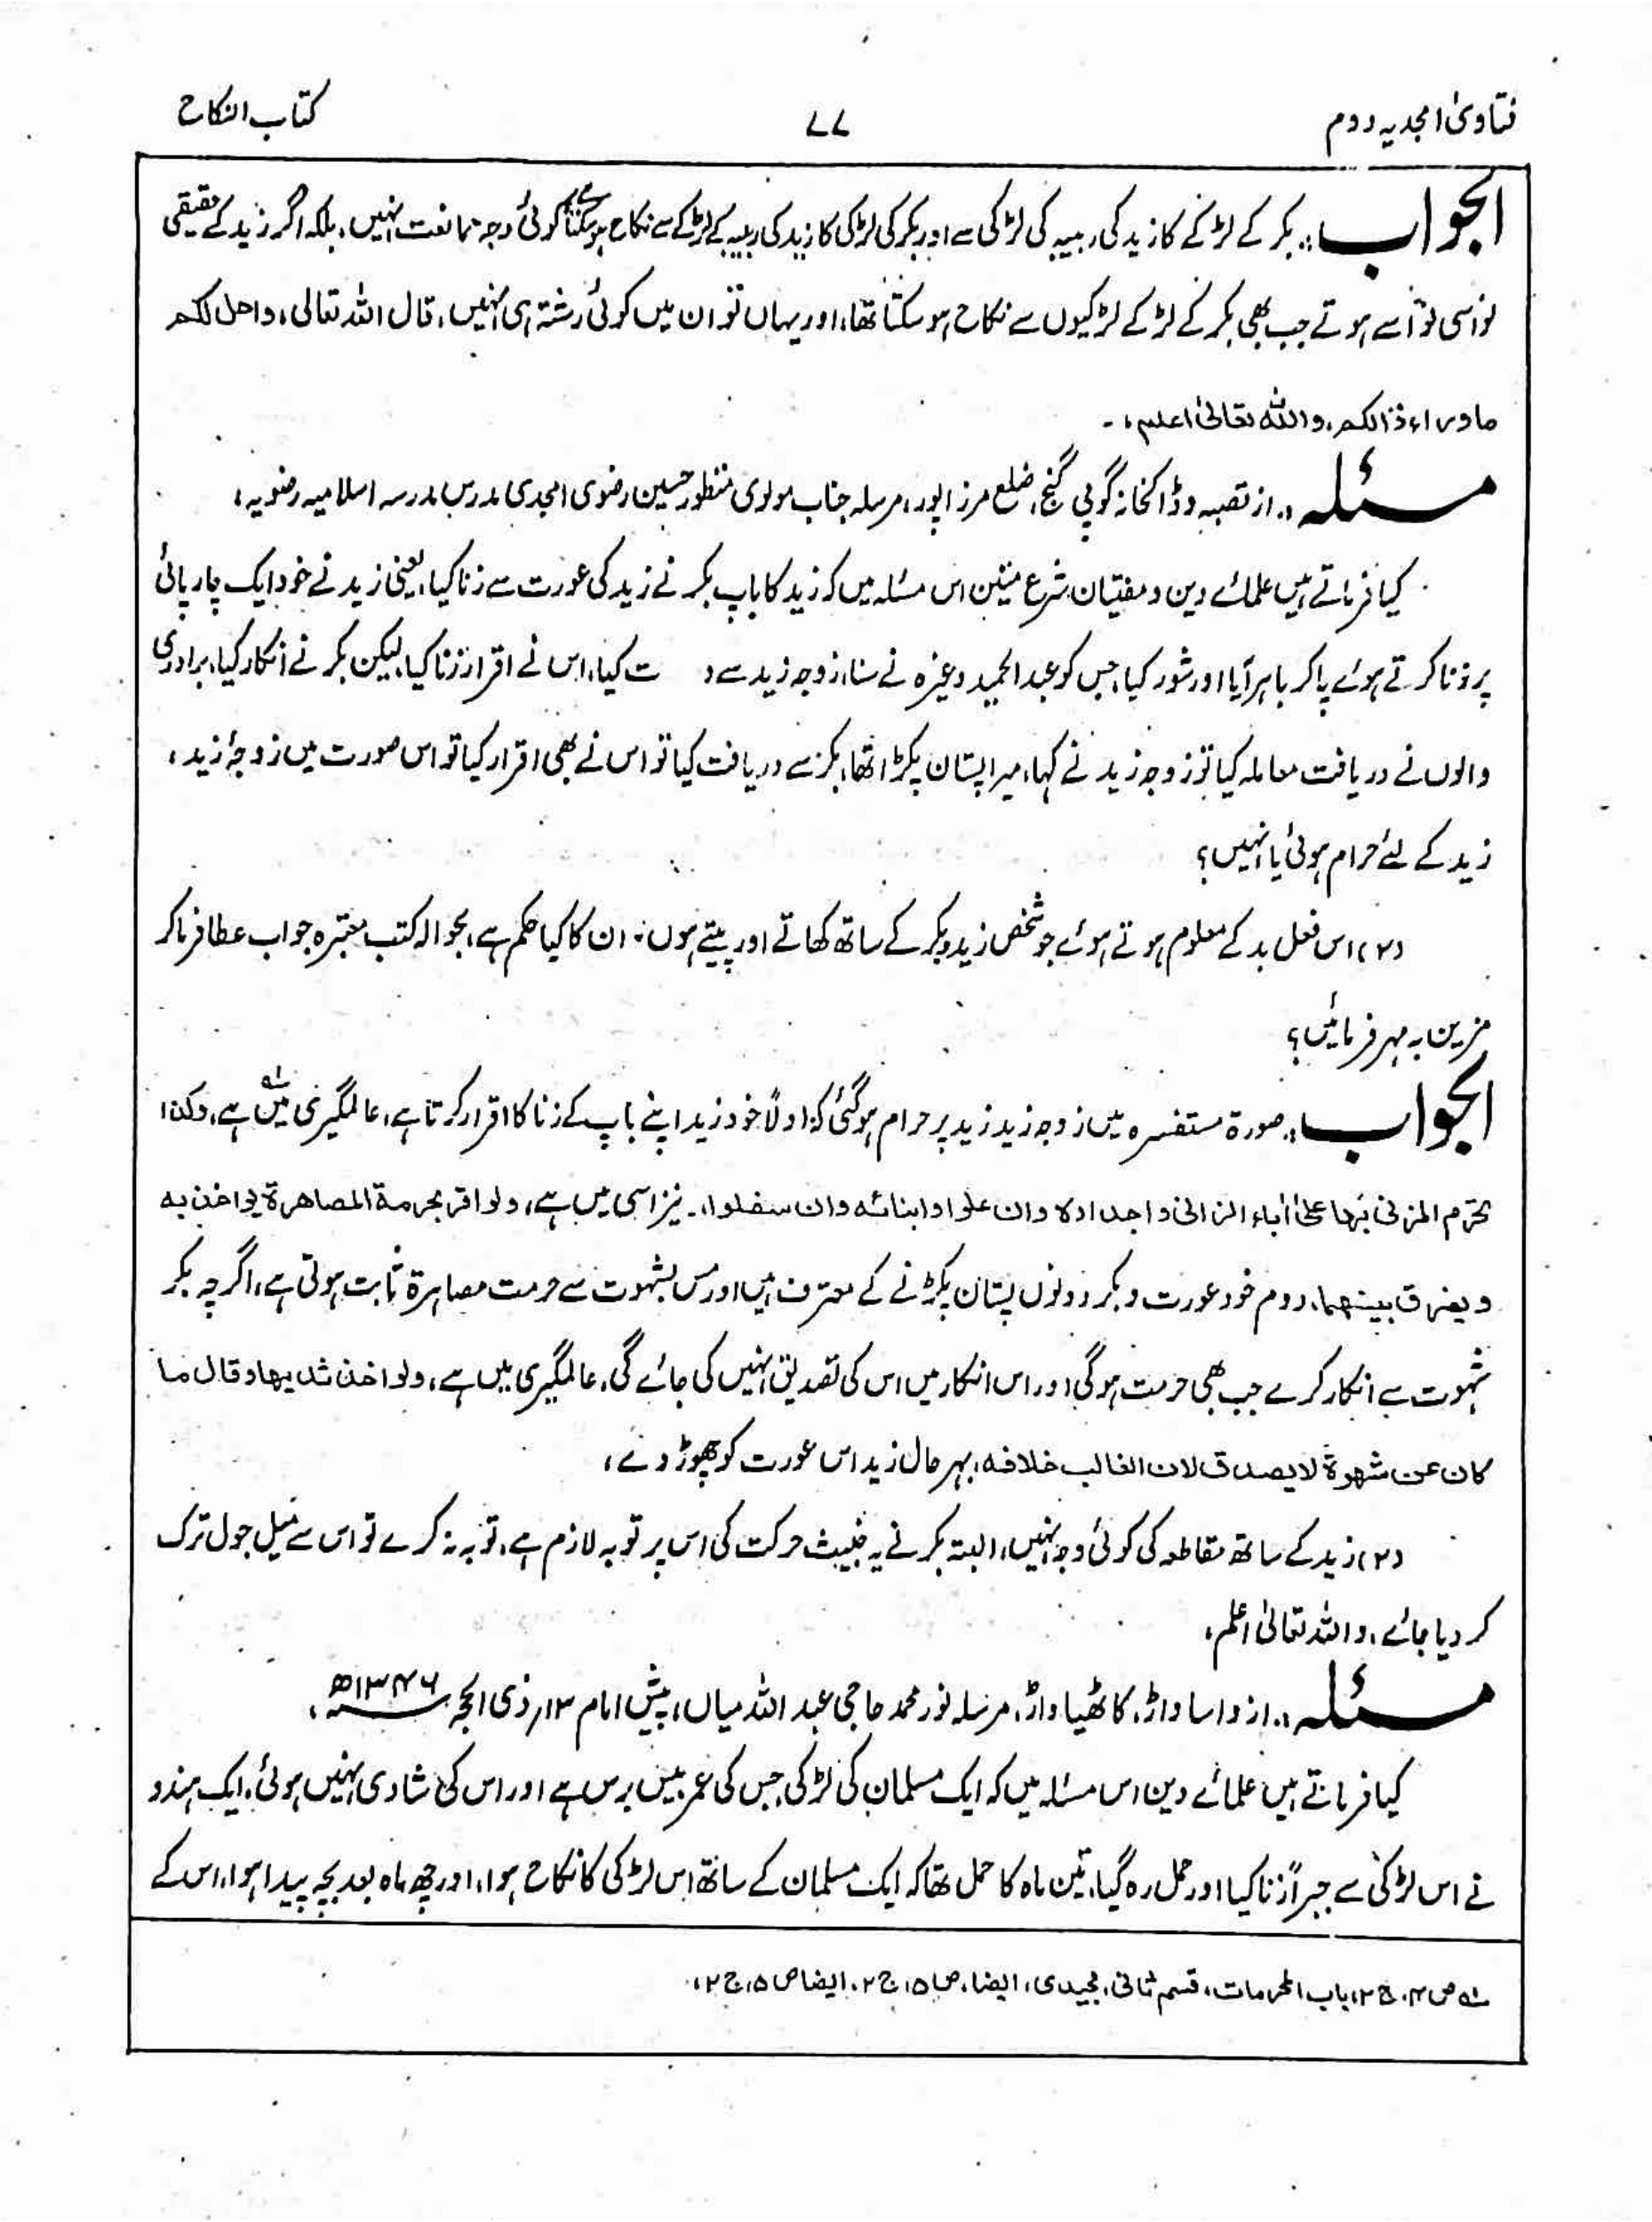 فتاویٰ امجدیہ دوم
۷۷
کتاب النکاح
الجواب:۔ بکر کے لڑکے کا زید کی ربیبہ کی لڑکی سے اور بکر کی لڑکی کا زید کی ربیبہ کے لڑکے سے نکاح ہو سکتا ہے کوئی وجہ ممانعت نہیں، بلکہ اگر زید کے حقیقی
نواسی نواسے ہوتے جب بھی بکر کے لڑکے لڑکیوں سے نکاح ہو سکتا تھا، اور یہاں تو ان میں کوئی رشتہ ہی نہیں، قال اللہ تعالی، واحل لکم
ما وراء ذالکم، واللہ تعالیٰ اعلم،۔
مسئلہ:۔ از قصبہ و ڈاکخانہ گوپی گنج، ضلع مرزاپور، مرسلہ جناب مولوی منظور حسین رضوی امجدی مدرس مدرسہ اسلامیہ رضویہ،
کیا فرماتے ہیں علمائے دین و مفتیان شرع متین اس مسئلہ میں کہ زید کا باپ بکر نے زید کی عورت سے زنا کیا، یعنی زید نے خود ایک چارپائی
پر زنا کرتے ہوئے پاکر باہر آیا اور شور کیا، جس کو عبد الحمید وغیرہ نے سنا، زوجہ زید سے د ت کیا، اس نے اقرار زنا کیا، لیکن بکر نے انکار کیا، برادری
والوں نے دریافت معاملہ کیا تو زوجہ زید نے کہا، میرا پستان پکڑا تھا، بکر سے دریافت کیا تو اس نے بھی اقرار کیا تو اس صورت میں زوجۂ زید،
زید کے لئے حرام ہوئی یا نہیں؟
(۲) اس فعل بد کے معلوم ہوتے ہوئے جو شخص زید و بکر کے ساتھ کھاتے اور پیتے ہوں، ان کا کیا حکم ہے، بحوالہ کتب معتبرہ جواب عطا فرماکر
مزین بہ مہر فرمائیں؟
الجواب:۔ صورۃ مستفسرہ میں زوجہ زید زید پر حرام ہو گئی کہ اولاً خود زید اپنے باپ کے زنا کا اقرار کرتا ہے، عالمگیری میں ہے، وکذا
تحرم المزنی بہا علیٰ اٰباء الزانی و اجدادہ وان علوا وابنائہ وان سفلوا، نیز اسی میں ہے، ولو اقر بحرمۃ المصاھرۃ یواخذ بہ
و یفرق بینھما، دوم خود عورت و بکر دونوں پستان پکڑنے کے معترف ہیں اور مس بشہوت سے حرمت مصاہرۃ ثابت ہوتی ہے، اگرچہ بکر
شہوت سے انکار کرے جب بھی حرمت ہوگی اور اس انکار میں اس کی تصدیق نہیں کی جائے گی، عالمگیری میں ہے، ولو اخذ ثدیھا وقال ما
کان عن شھوۃ لا یصدق لان الغالب خلافہ، بہر حال زید اس عورت کو چھوڑ دے،
(۲) زید کے ساتھ مقاطعہ کی کوئی وجہ نہیں، البتہ بکر نے یہ خبیث حرکت کی اس پر توبہ لازم ہے، توبہ نہ کرے تو اس سے میل جول ترک
کر دیا جائے، واللہ تعالیٰ اعلم،
مسئلہ:۔ از واساواڑ، کاٹھیاواڑ، مرسلہ نور محمد حاجی عبد اللہ میاں، پیش امام ۱۳؍ ذی الحجہ ۱۳۴۶ھ،
کیا فرماتے ہیں علمائے دین اس مسئلہ میں کہ ایک مسلمان کی لڑکی جس کی عمر بیس برس ہے اور اس کی شادی نہیں ہوئی، ایک ہندو
نے اس لڑکی سے جبراً زنا کیا اور حمل رہ گیا، تین ماہ کا حمل تھا کہ ایک مسلمان کے ساتھ اس لڑکی کا نکاح ہوا، اور چھ ماہ بعد بچہ پیدا ہوا، اس کے
لہ ص ۴، ج ۲، باب المحرمات، قسم ثانی، مجیدی، ایضا، ص ۵، ج ۲، ایضا ص ۵، ج ۲،